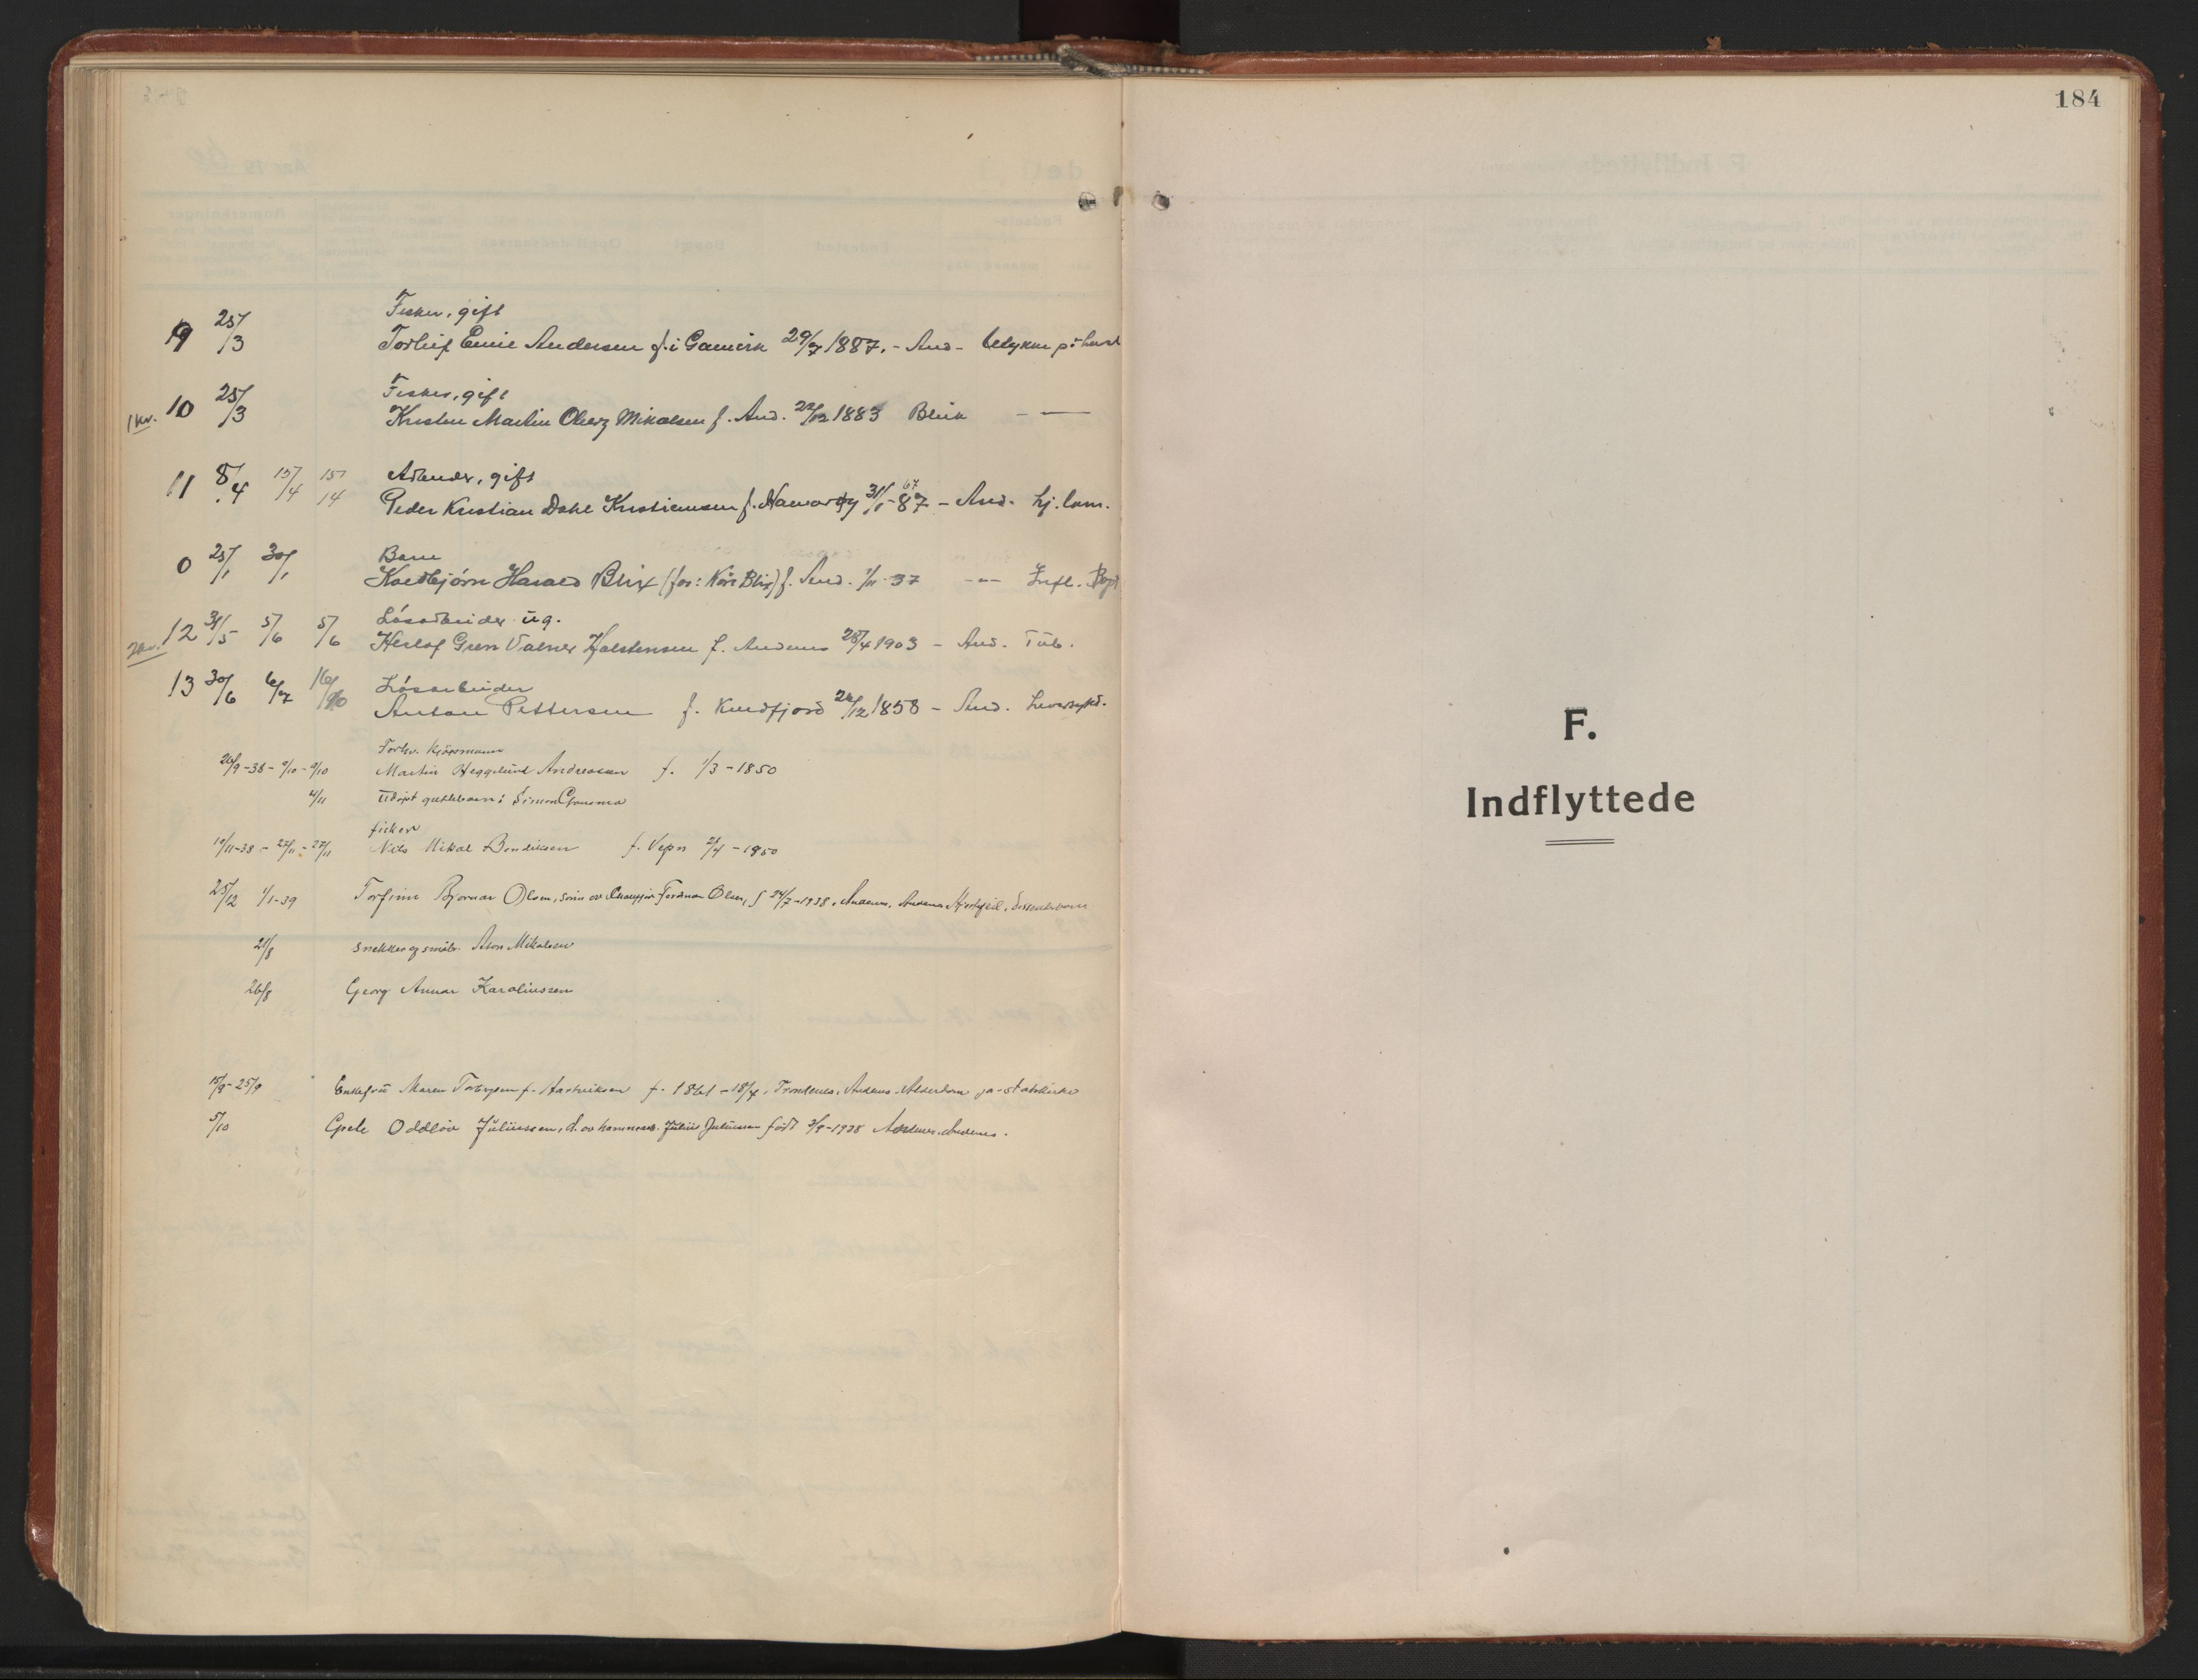 184
Fisker, gift
9 25/3 Torleif Emil Andersen f. i Gamvik 29/7 1887. - And -
Fisker, gift
1 kv. 10 25/3 Kristen Martin Oberg Mikalsen f. And. 22/12 1883 Bleik - —
Arbeider, gift
11 8/4 15/4 15/4 Peder Kristian Dahl Kristiansen f. Hamarøy 31/1 - 87 67 - And. hj. lam.
Barn
0 25/1 30/1 Harald Blix (for: Kåre Blix) f. And. 1/11 - 37 -"- Infl.
Løsarbeider ug.
2 kv. 12 31/5 5/6 5/6 Valner Halstensen f. Andenes 28/4 1903 - And. Tub.
Løsarbeider
13 30/6 6/7 16/10 Anton Pettersen f. Kvedfjord 24/12 1858 - And.
Forhv. Kjøpmann
26/9 - 38 - 9/10 - 9/10 Martin Heggelund Andreassen f. 1/3 - 1850
4/11 Udøpt guttebarn: Simon
fisker
19/11 - 38 - 27/11 - 27/11 Nils Mikal Bendiksen f. Vefsn 2/4 - 1850
25/12 1/1 - 39 Torfinn Bjornar Olsen, sønn av Ferdinan Olsen, f 24/7 - 1938, Andenes, Andenes
21/8 Snekker og småbr. Aron Mikalsen
26/8 Georg Annar Karoliussen
15/9 - 25/9 Enkefru Maren Torbergsen f. f. 1861 - 18/4, Trondenes, Andenes - Alderdom ja - statskirke
5/10 Grete Oddlöv Juliussen, d. av Julius Juliussen født 3/9 - 1938 Andenes, Andenes.
F.
Indflyttede